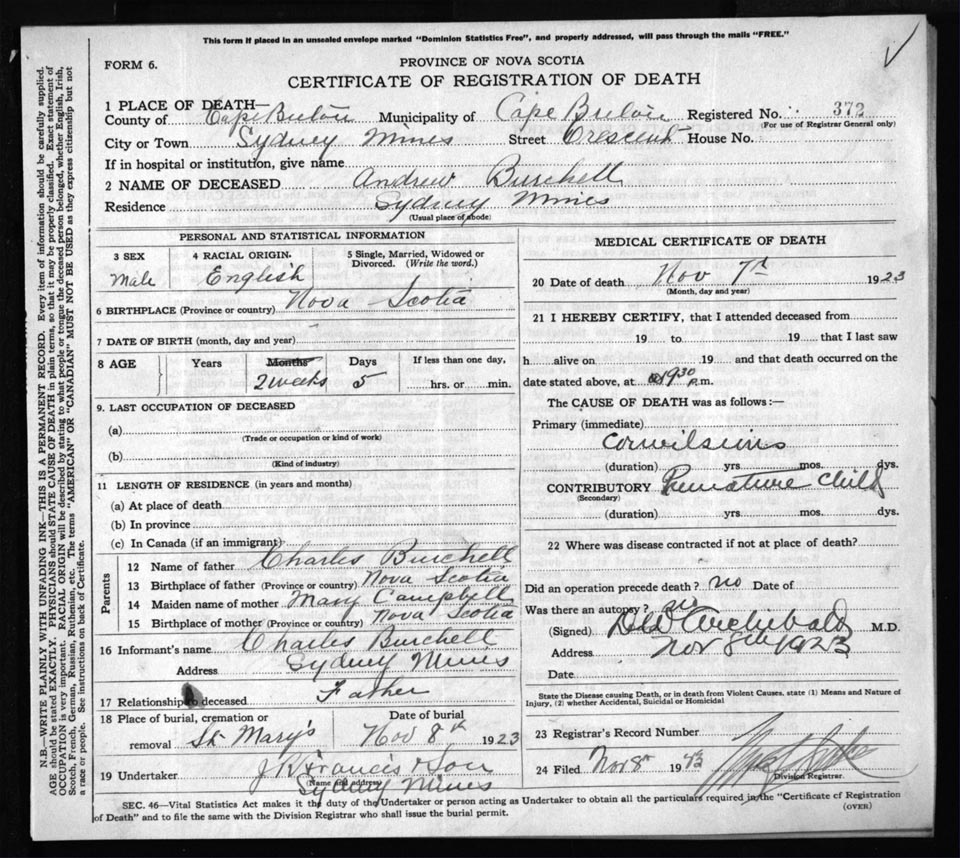 This form if placed in an unsealed envelope marked "Dominion Statistics Free", and properly addressed, will pass through the mails "FREE."
FORM 6.
PROVINCE OF NOVA SCOTIA
CERTIFICATE OF REGISTRATION OF DEATH
1 PLACE OF DEATH—
County of Cape Breton Municipality of Cape Breton Registered No. 372
(For use of Registrar General only)
City or Town Sydney Mines Street Crescent House No.
If in hospital or institution, give name
2 NAME OF DECEASED Andrew Burchell
Residence Sydney Mines
(Usual place of abode)
PERSONAL AND STATISTICAL INFORMATION
3 SEX 4 RACIAL ORIGIN. 5 Single, Married, Widowed or Divorced. (Write the word.)
Male English
6 BIRTHPLACE (Province or country) Nova Scotia
7 DATE OF BIRTH (month, day and year)
8 AGE Years Months Days If less than one day,
2 weeks 5 hrs. or min.
9. LAST OCCUPATION OF DECEASED
(a)
(Trade or occupation or kind of work)
(b)
(Kind of industry)
11 LENGTH OF RESIDENCE (in years and months)
(a) At place of death
(b) In province
(c) In Canada (if an immigrant)
Parents
12 Name of father Charles Burchell
13 Birthplace of father (Province or country) Nova Scotia
14 Maiden name of mother Mary Campbell
15 Birthplace of mother (Province or country) Nova Scotia
16 Informant's name Charles Burchell
Address Sydney Mines
17 Relationship to deceased Father
18 Place of burial, cremation or removal St Mary's
Date of burial
Nov 8th 1923
19 Undertaker J. Francis & Son
(Name and address)
Sydney Mines
MEDICAL CERTIFICATE OF DEATH
20 Date of death Nov 7th 1923
(Month, day and year)
21 I HEREBY CERTIFY, that I attended deceased from
19 to 19 that I last saw
h alive on 19 and that death occurred on the
date stated above, at 9 30 P.m.
The CAUSE OF DEATH was as follows:—
Primary (immediate)
Convilsions
(duration) yrs. mos. dys.
CONTRIBUTORY Premature child
(Secondary)
(duration) yrs. mos. dys.
22 Where was disease contracted if not at place of death?
Did an operation precede death? no Date of
Was there an autopsy? no
(Signed) Archibald M.D.
Address Nov 8th 1923
Date
State the Disease causing Death, or in death from Violent Causes, state (1) Means and Nature of
Injury, (2) whether Accidental, Suicidal or Homicidal
23 Registrar's Record Number
24 Filed Nov 8 19
Division Registrar.
SEC. 46—Vital Statistics Act makes it the duty of the Undertaker or person acting as Undertaker to obtain all the particulars required in the "Certificate of Registration
of Death" and to file the same with the Division Registrar who shall issue the burial permit.
(OVER)
N.B.—WRITE PLAINLY WITH UNFADING INK—THIS IS A PERMANENT RECORD. Every item of information should be carefully supplied.
AGE should be stated EXACTLY. PHYSICIANS should STATE CAUSE OF DEATH in plain terms, so that it may be properly classified. Exact statement of
OCCUPATION is very important. RACIAL ORIGIN will be described by stating to what people or tongue the deceased person belonged, whether English, Irish,
Scotch, French, German, Russian, Ruthenian, etc. The terms "AMERICAN" OR "CANADIAN" MUST NOT BE USED as they express citizenship but not
a race or people. See instructions on back of Certificate.